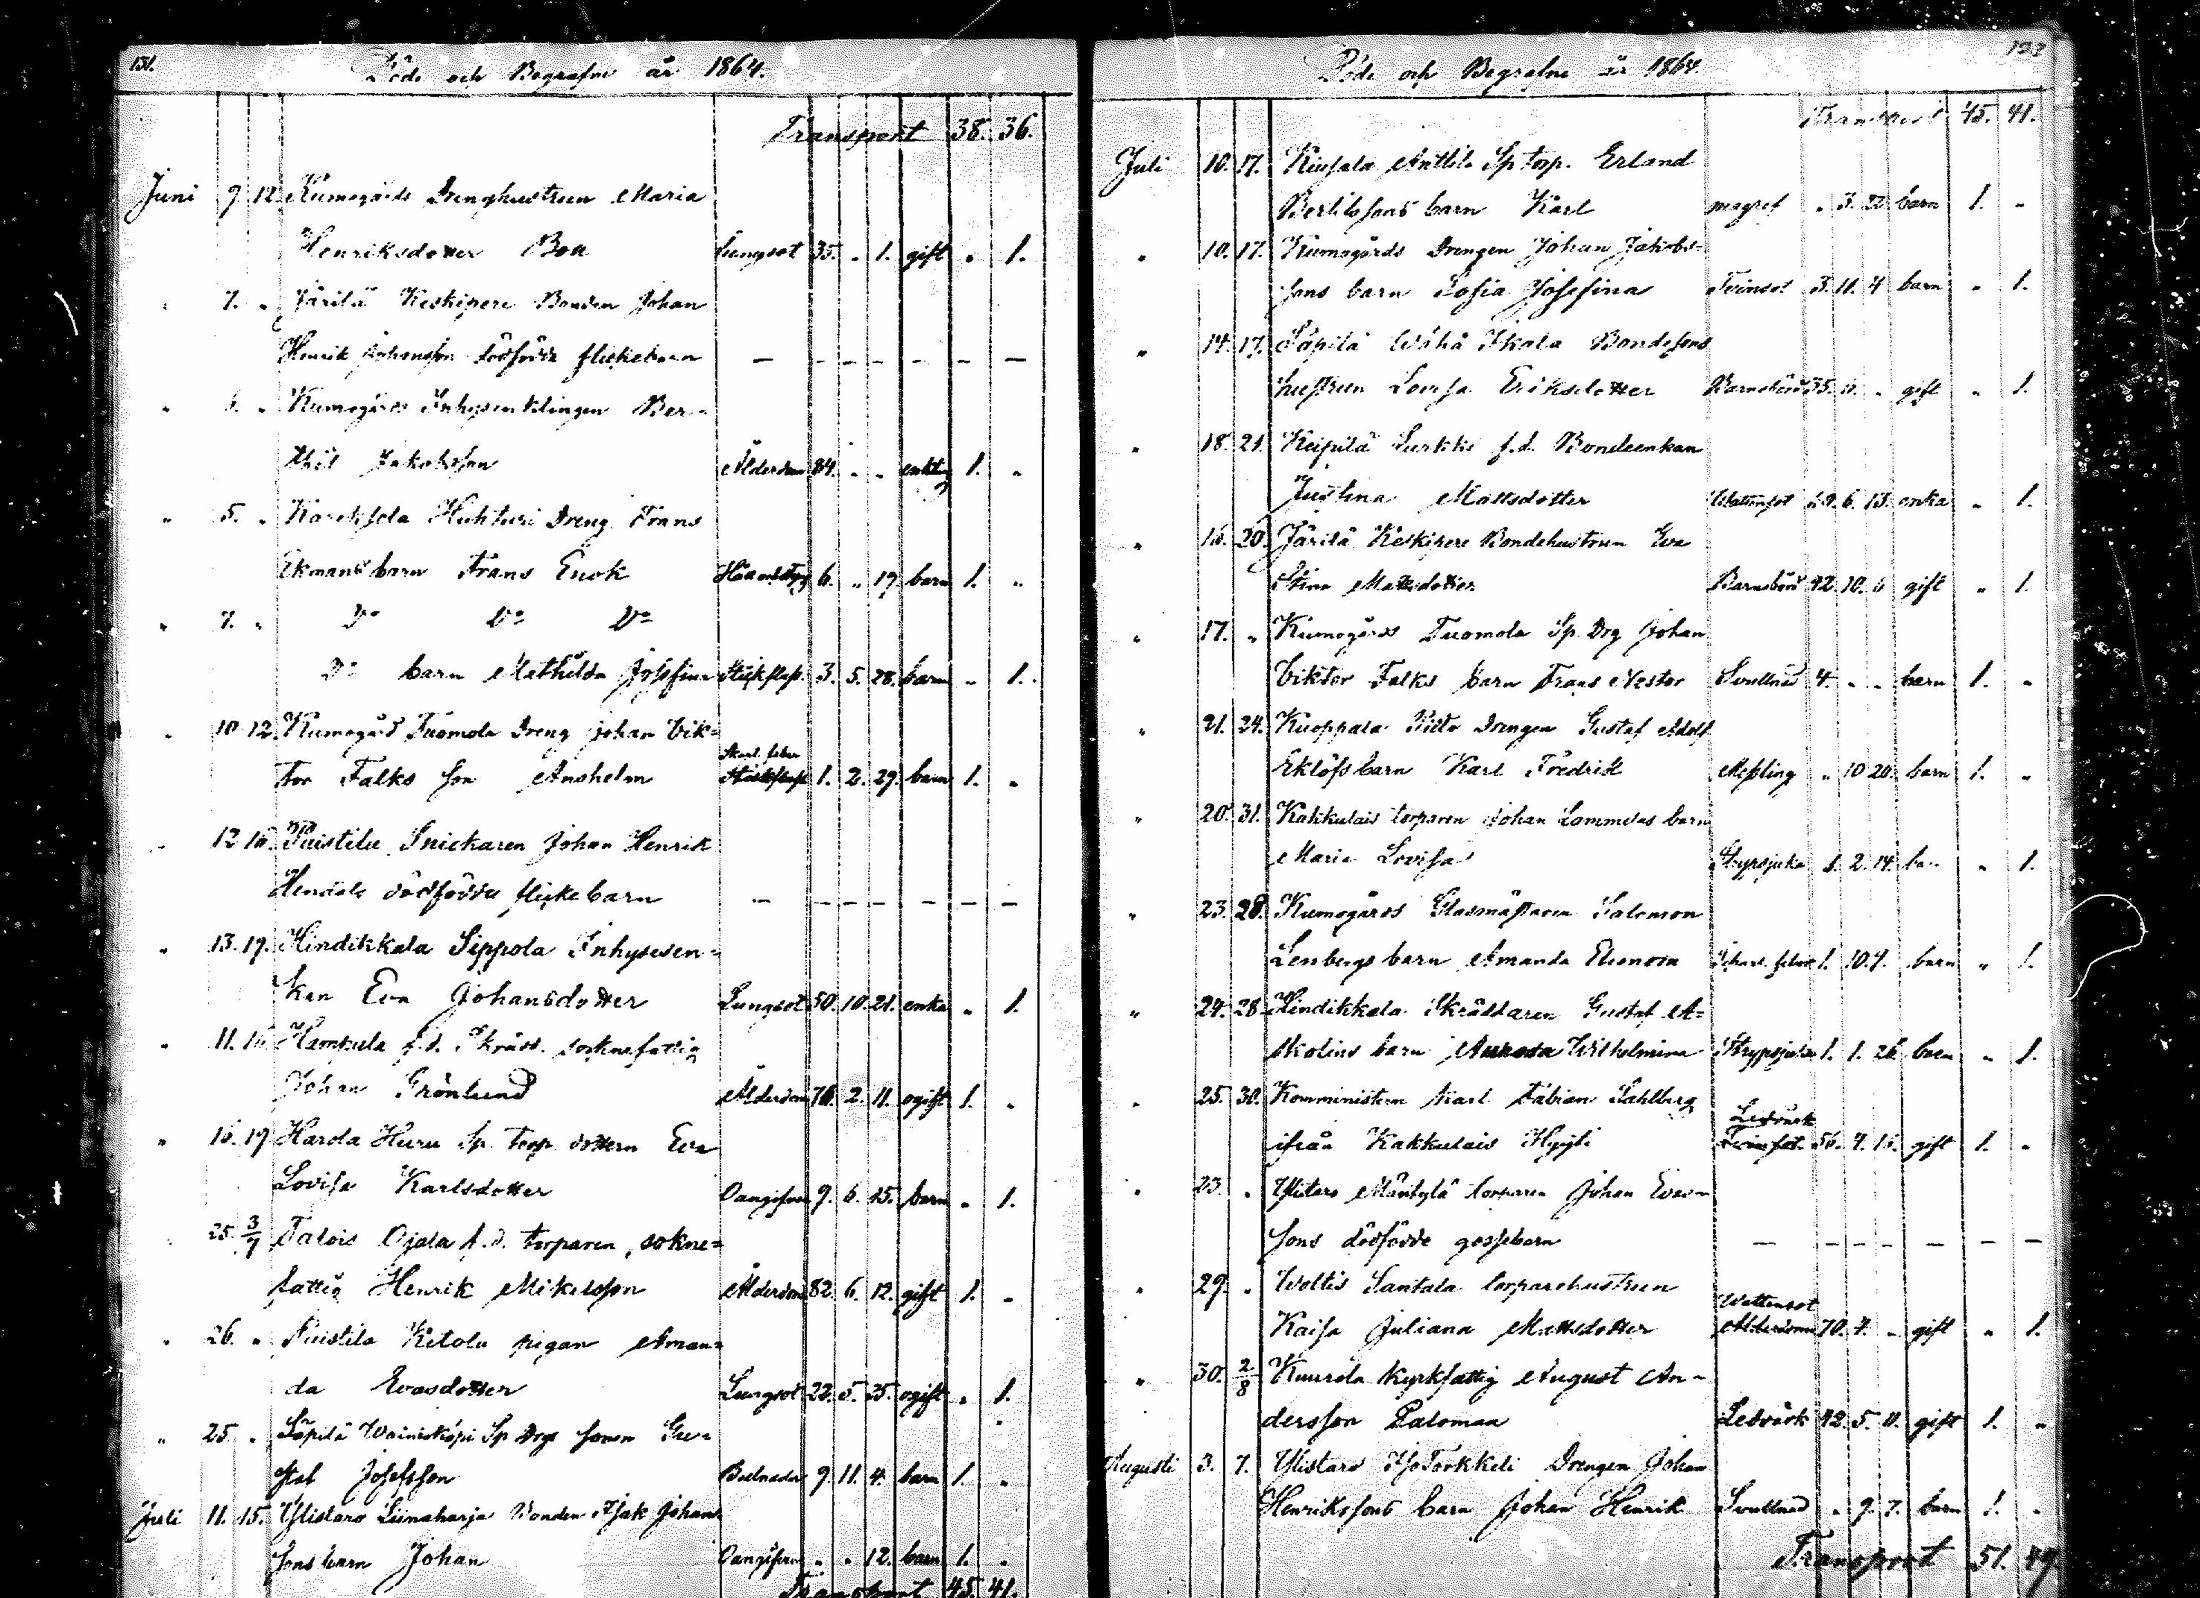 131.
Döde och Begrafne år 1864.
Transport 38. 36.
Juni 9 12. Kumogårds Drenghustrun Maria
Henriksdotter Boa Lungsot 35. „ 1. gift „ 1.
„ 7. „ Järilä Keskipere Bonden Johan
Henrik Johansson dödfödda flickebarn — — — — — — —
„ „ Kumogårds Inhysenklingen Ber-
thil Jakobsson Ålderdom 84. „ „ enkling 1. „
„ 5. „ Huhturi Dreng Frans
Ekmans barn Frans Enok 6. „ 19. barn 1. „
„ 7. „ Do Do Do
Do barn Mathilda Josefina 3. 5. 28. barn „ 1.
„ 10 12. Kumogård Tuomola Dreng Johan Vik-
tor Falks son Anshelm Skarl. feber 1. 2. 29. barn 1. „
„ 12 16. Puistila Snickaren Johan Henrik
dödfödda flickebarn — — — — — — —
„ 13. 19. Hindikkala Sippola Inhysesen-
kan Eva Johansdotter Lungsot 50. 10. 21. enka „ 1.
„ 11. 16. Hampula f.d. Skrädd. socknefattig
Johan Grönlund Ålderdom 2. 11. ogift 1. „
„ 16. 19 Harola Huru Sp. Torp. dottern Eva
Lovisa Karlsdotter Oangifven 9. 6. 15. barn „ 1.
25. 3/7 Talois Ojala f.d. torparen, sokne-
fattig Henrik Mikelsson Ålderdom 82. 6. 12. gift 1. „
„ 26. „ Puistila Ketola pigan Aman-
da Evasdotter Lungsot 22. 5. 25. ogift „ 1.
„ 25. „ Säpilä Wainiskäpi Sp Drgs sonen Gu-
staf Josefsson 9. 11. 4. barn 1. „
Juli 11. 15. Ylistaro Liinaharja Bonden Isak Johans-
sons barn Johan Oangifven „ „ 12. barn 1. „
Transport 45. 41.
Döde och Begrafne år 1864.
Transport 45. 41.
Juli 10. 17. Anttila Sp torp. Erland
Bertilssons barn Karl „ 3. 22 barn 1. „
„ 10. 17. Kumogårds Drengen Johan Jakobs-
sons barn Sofia Josefina Tvinsot 3. 11. 4 barn „ 1.
„ 14. 17. Säpilä Wähä Skala Bondesons
hustrun Lovisa Eriksdotter Barnsbörd 35. gift „ 1.
„ 18. 21. Keipilä f.d. Bondeenkan
Justina Mattsdotter Wattensot 6. 13. enka „ 1.
„ 16. 20. Järilä Keskipere Bondehustrun Eva
Stina Mattsdotter Barnsbörd 42 10. 6 gift „ 1.
„ 17. „ Kumogårds Tuomola Sp. Drg Johan
Viktor Falks barn Frans Nestor Svullnad 4. „ „ barn 1. „
„ 21. 24. Kuoppala Drengen Gustaf Adolf
Eklöfs barn Karl Fredrik Messling „ 10 20. barn 1. „
„ 20. 31. Kakkulais torparen Johan Lammelas barn
Maria Lovisa Strypsjuka 1. 2. 14. barn „ 1.
„ 23. 28. Kumogårds Glasmästaren Salomon
Lenbergs barn Amanda Elenora Skarl. feber 1. 10. 7. barn „ 1.
„ 24. 28 Hindikkala Skräddaren Gustaf A-
skolins barn Aurora Wilhelmina Strypsjuka 1. 1. 26. barn „ 1.
„ 25. 30. Komministern Karl Fabian Sahlberg
ifrån Kakkulais Hyijti Ledvärk 56. 7. 15. gift 1. „
„ 23. „ Ylistaro Mäntylä torparen Johan Evas-
sons dödfödde gossebarn — — — — — — —
„ 29. „ Woltis Santala torparehustrun
Kaisa Juliana Mattsdotter Wattensot 70. 4. „ gift „ 1.
„ 30. 2/8 Kuurola kyrkfattig August An-
dersson Palomaa Ledvärk 42. 5. 11. gift 1. „
Augusti 3. 7. Ylistaro IsoTorkkeli Drengen Johan
Henrikssons barn Johan Henrik Svullnad „ 9. 7. barn 1. „
Transport 51. 49